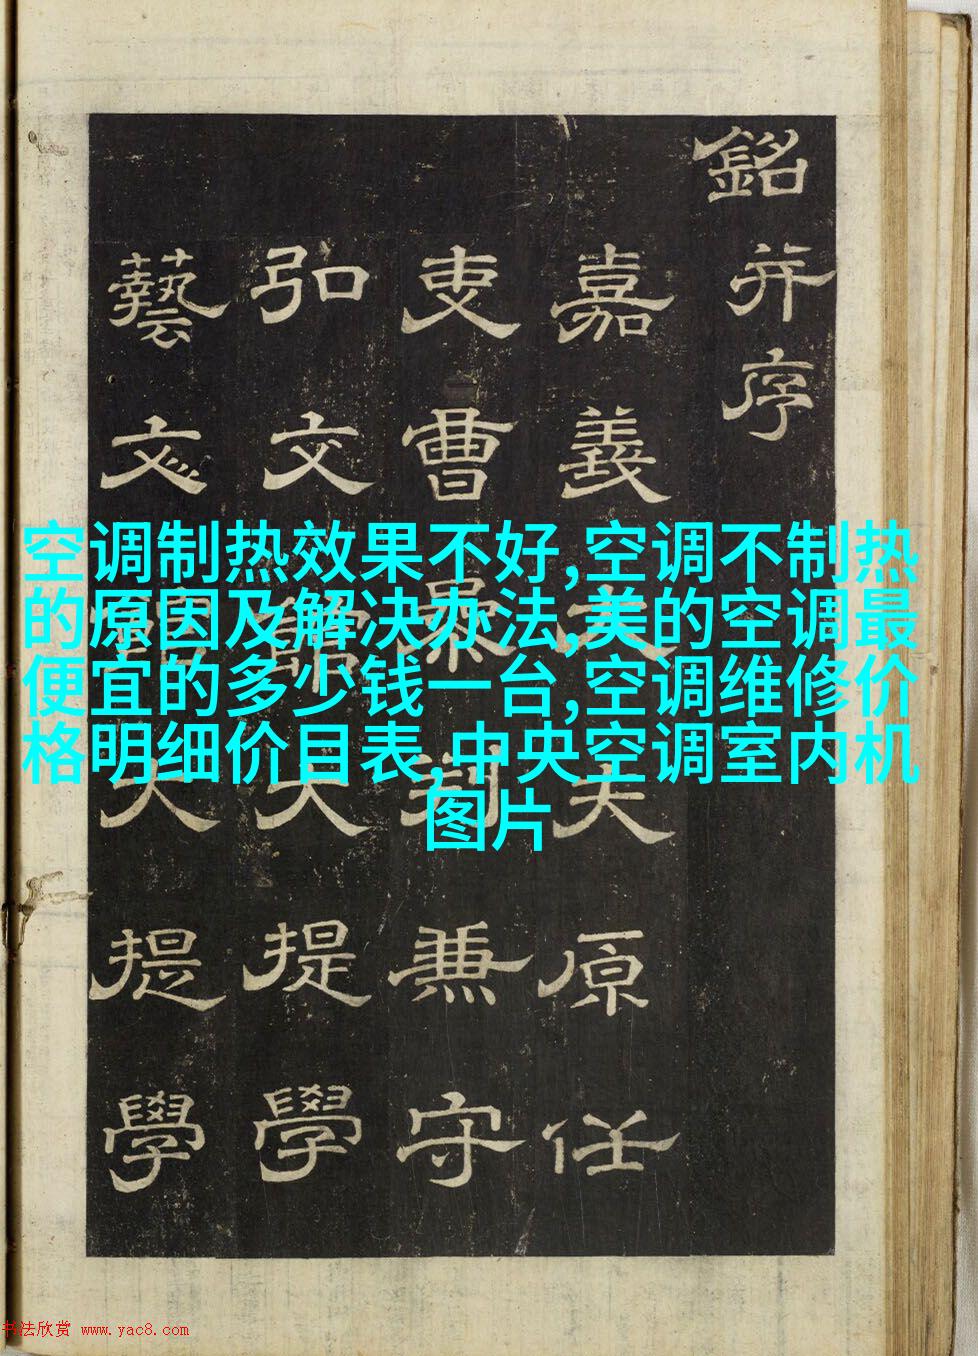 銘并序
嘉義大夫原任
吏曹參判兼守
弘文館大提學
藝文館大提學
空调制热效果不好,空调不制热
的原因及解决办法,美的空调最
便宜的多少钱一台,空调维修价
格明细价目表,中央空调室内机
图片
书法欣赏 www.yac8.com